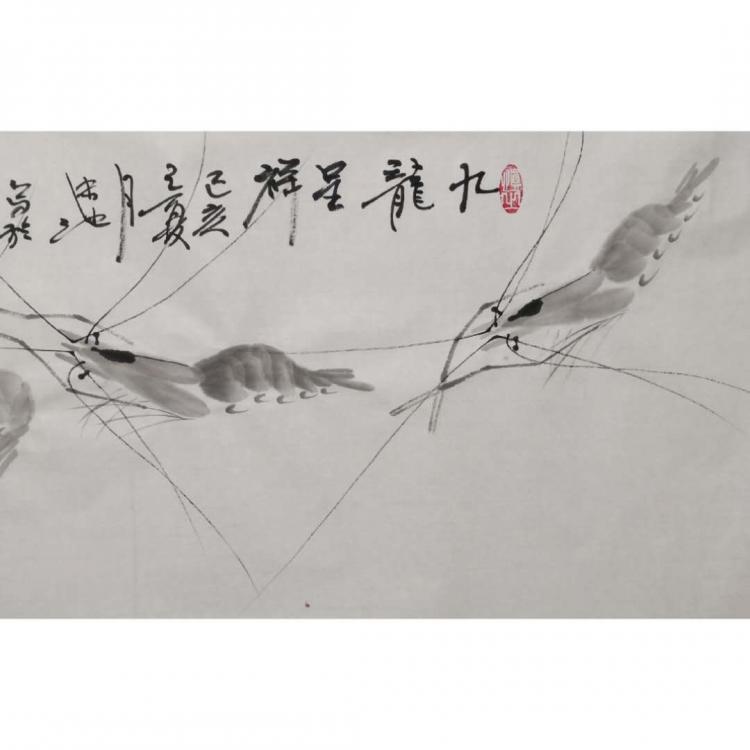 九龍呈祥
己亥
夏
月
写於